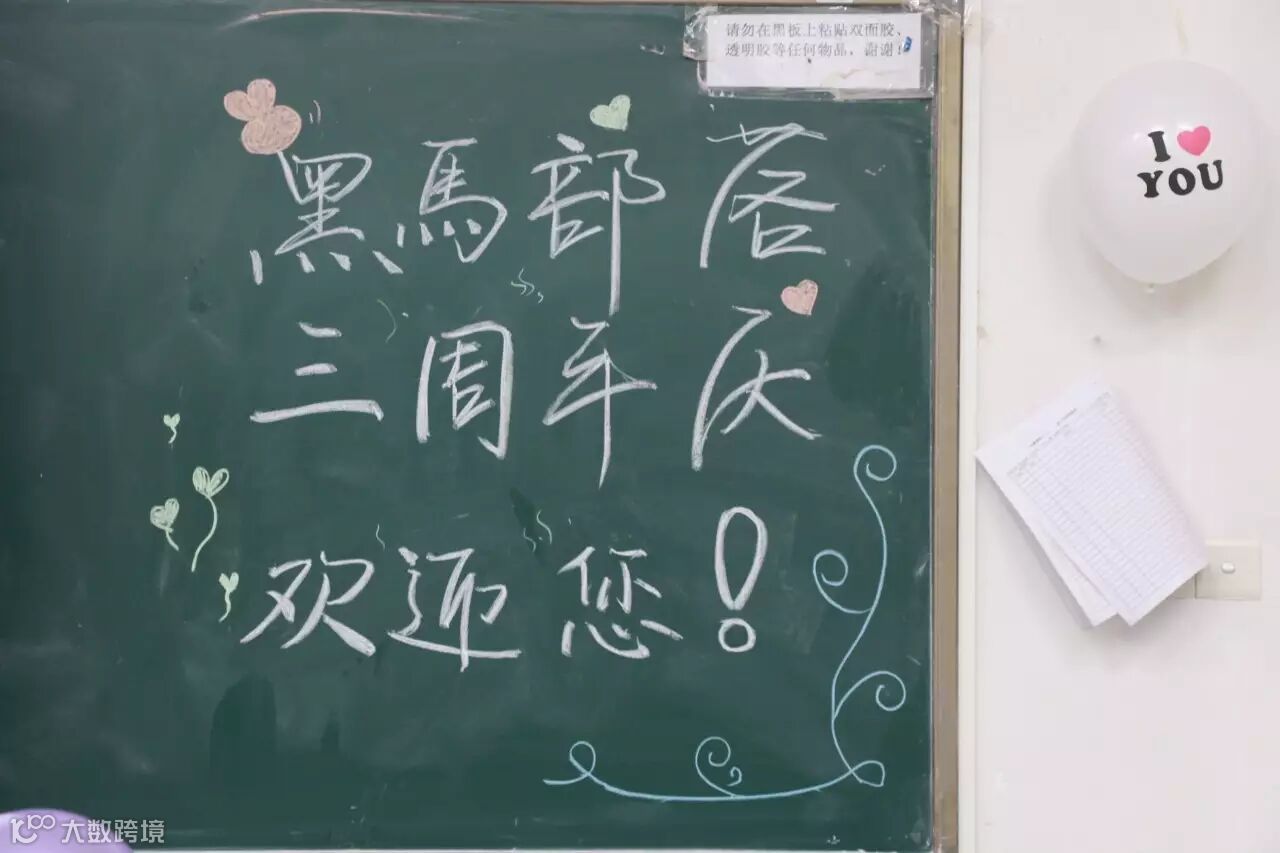 请勿在黑板上粘贴双面胶、
透明胶等任何物品，谢谢！
黑馬部落
三周年庆
欢迎您！
I
YOU
大数跨境